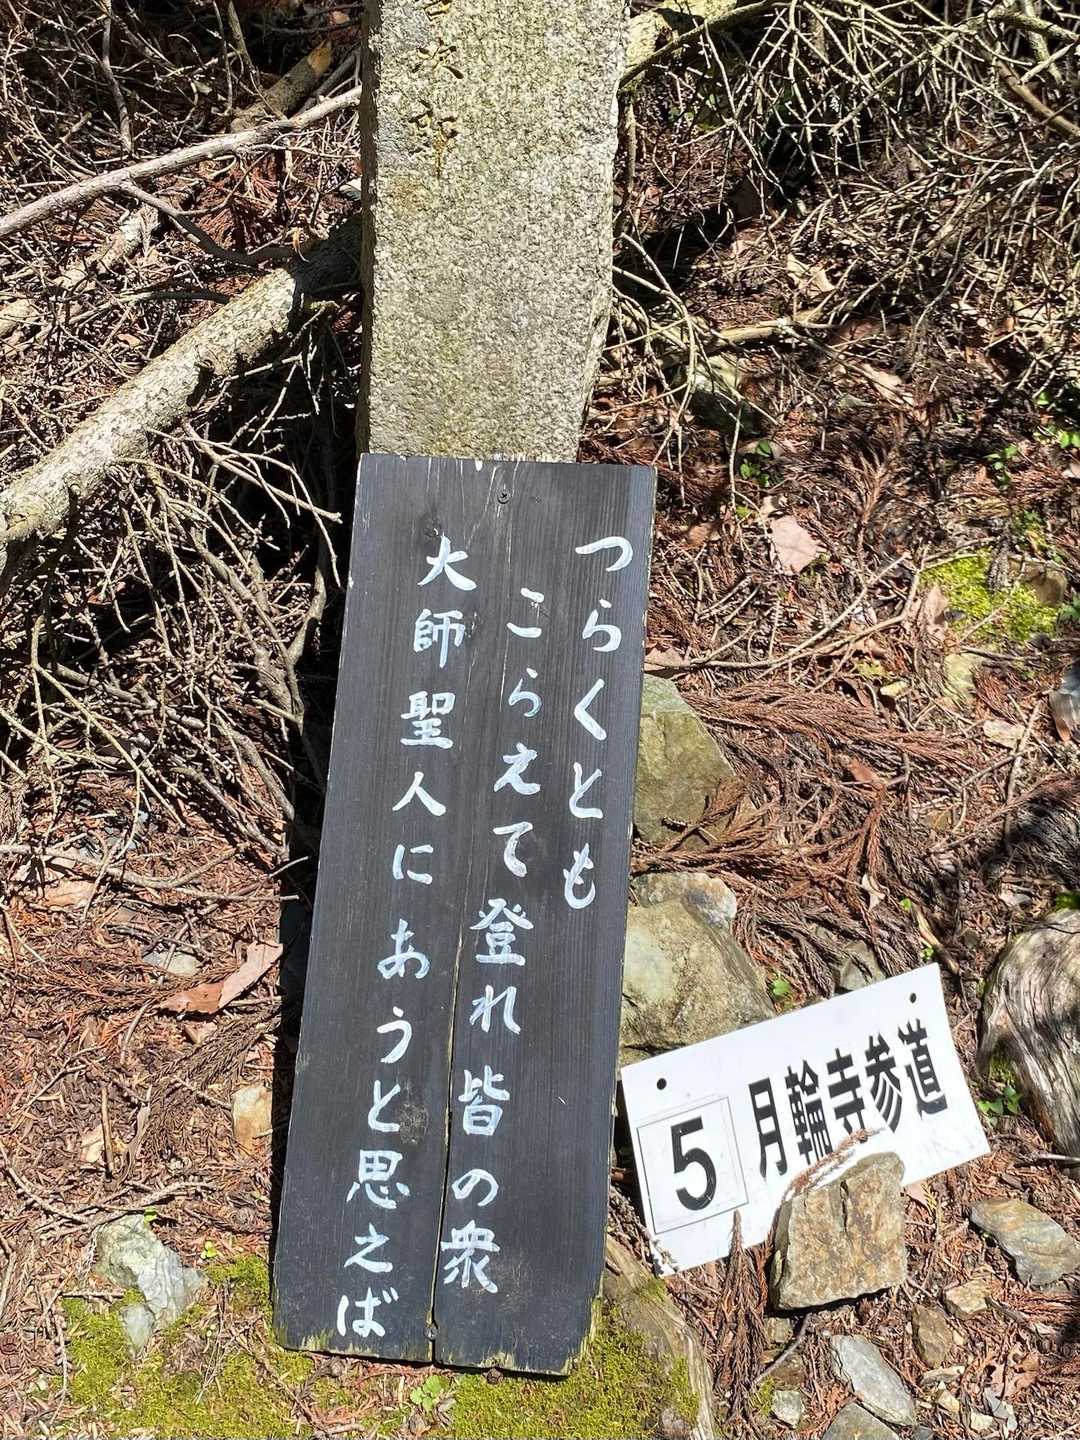 つらくとも
こらえて登れ皆の衆
大師聖人にあうと思えば
5 月輪寺参道